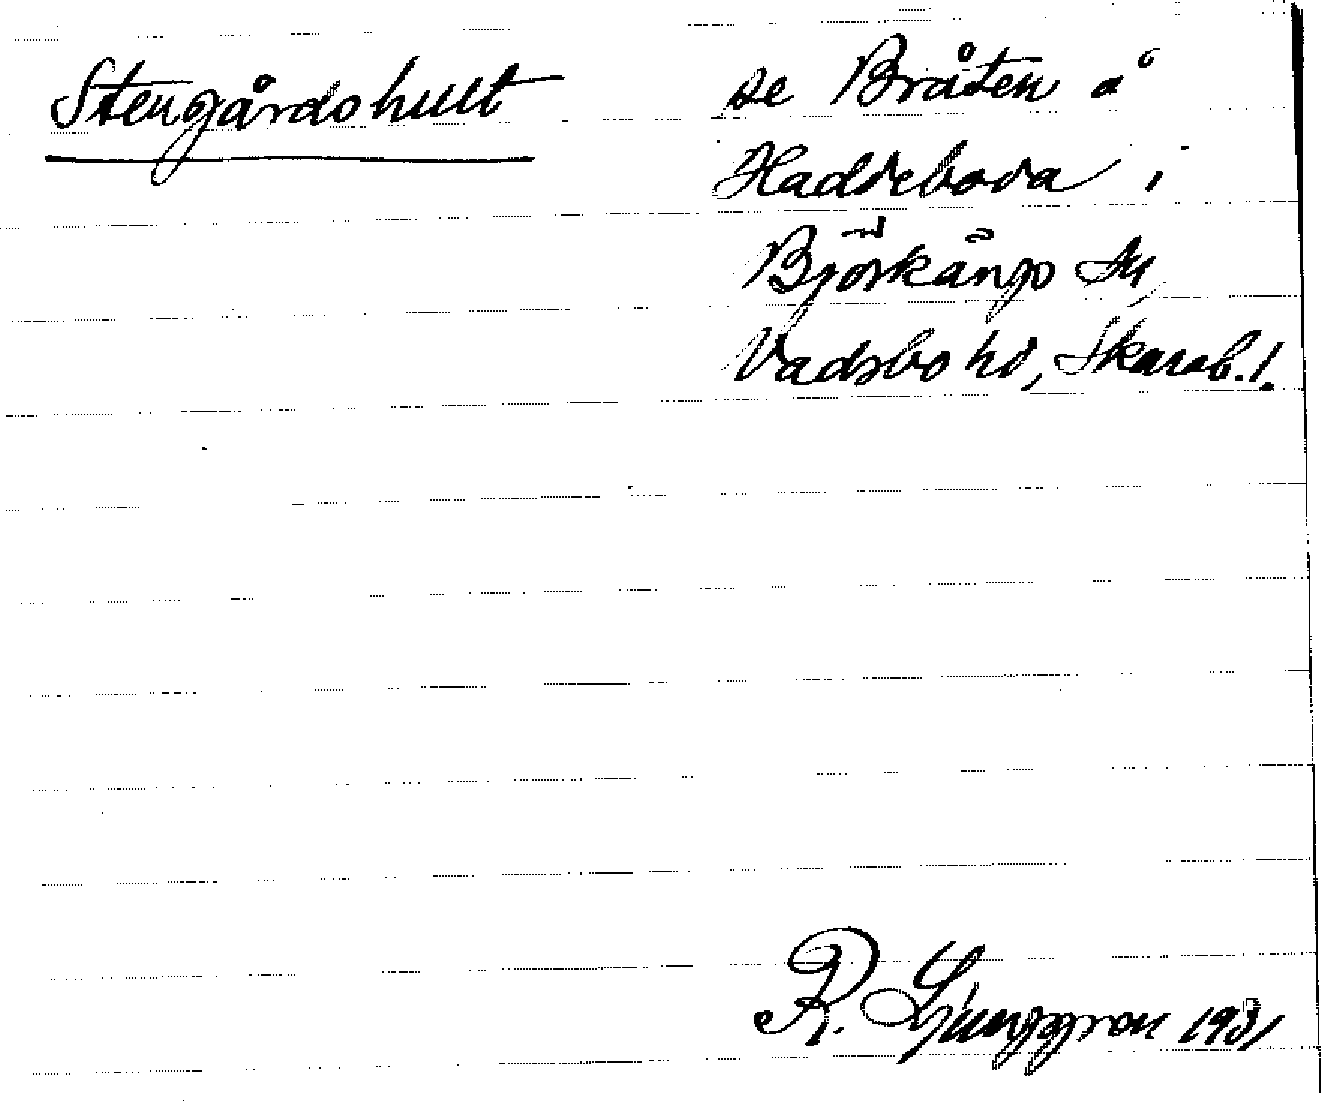 Stengårdshult
se Bråten å
Haddeboda i
Björkängs sn,
Vadsbo hd, Skarab. l.
R. Ljunggren 1931